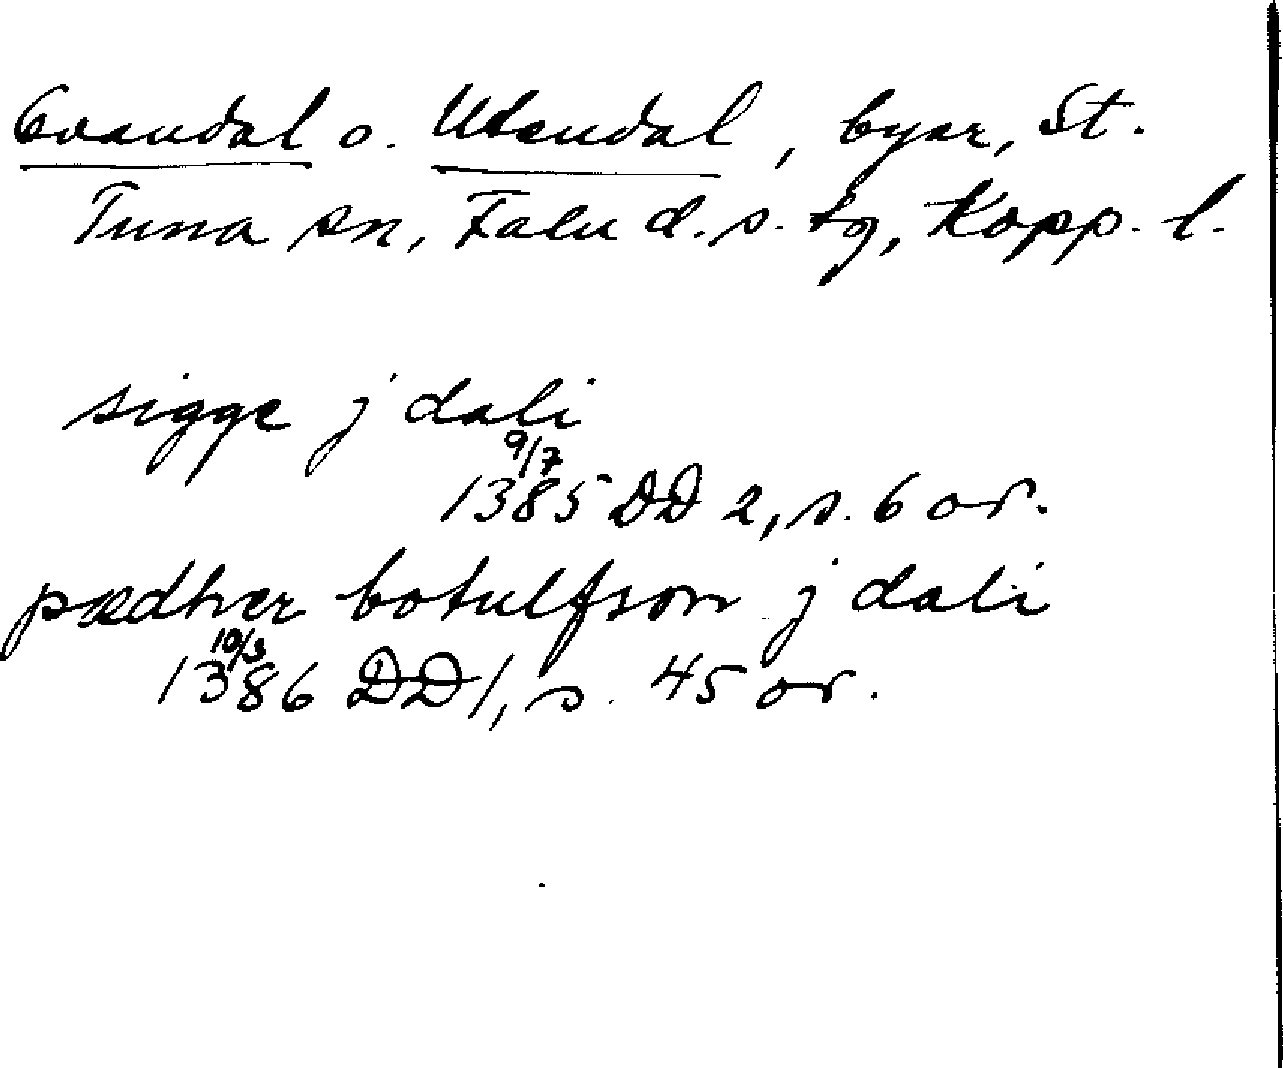 Ovandal o. Utendal, byar, St.
Tuna sn, Falu d.s. tg, Kopp. l.
sigge j dali
9/7
1385 DD 2, s. 6 or.
pædhær botulfson j dali
10/3
1386 DD 1, s. 45 or.